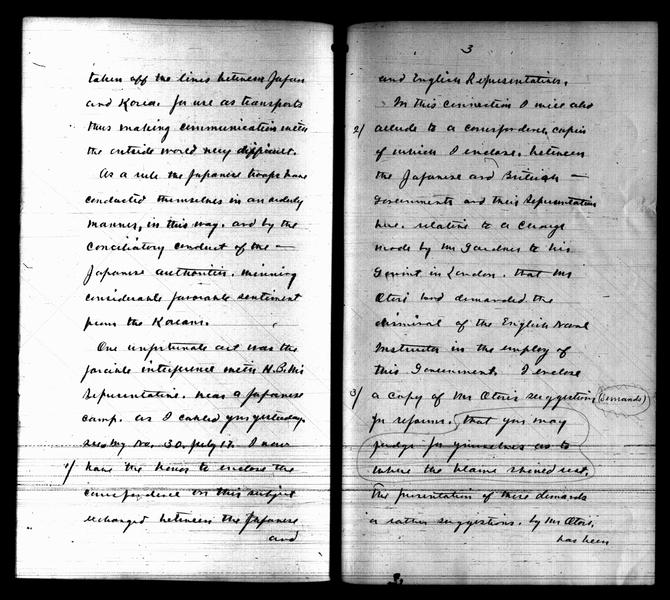 taken off the lines between Japan
and Korea. for use as transports
thus making communication with
the outside world very difficult.
As a rule the Japanese troops have
conducted themselves in an orderly
manner, in this way. and by the
conciliatory conduct of the —
Japanese authorities. winning
considerable favorable sentiment
from the Koreans.
One unfortunate act was the
forcible interference with H.B.M's
Representative. near a Japanese
camp. as I cabled you yesterday.
see my No. 30. July 17. I now
1/ have the honor to enclose the
correspondence on this subject
exchanged between the Japanese
and
3
and English Representatives.
In this connection I will also
2/ allude to a correspondence, copies
of which I enclose, between
the Japanese and British —
Governments and their Representatives
here. relative to a charge
made by Mr Gardner to his
Govmnt in London. that Mr
Otori had demanded the
dismissal of the English Naval
Instructor in the employ of
this Government. I enclose
3/ a copy of Mr Otori's suggestions (demands)
for reforms. that you may
judge for yourselves as to
where the blame should rest.
The presentation of these demands
or rather suggestions. by Mr Otori.
has been